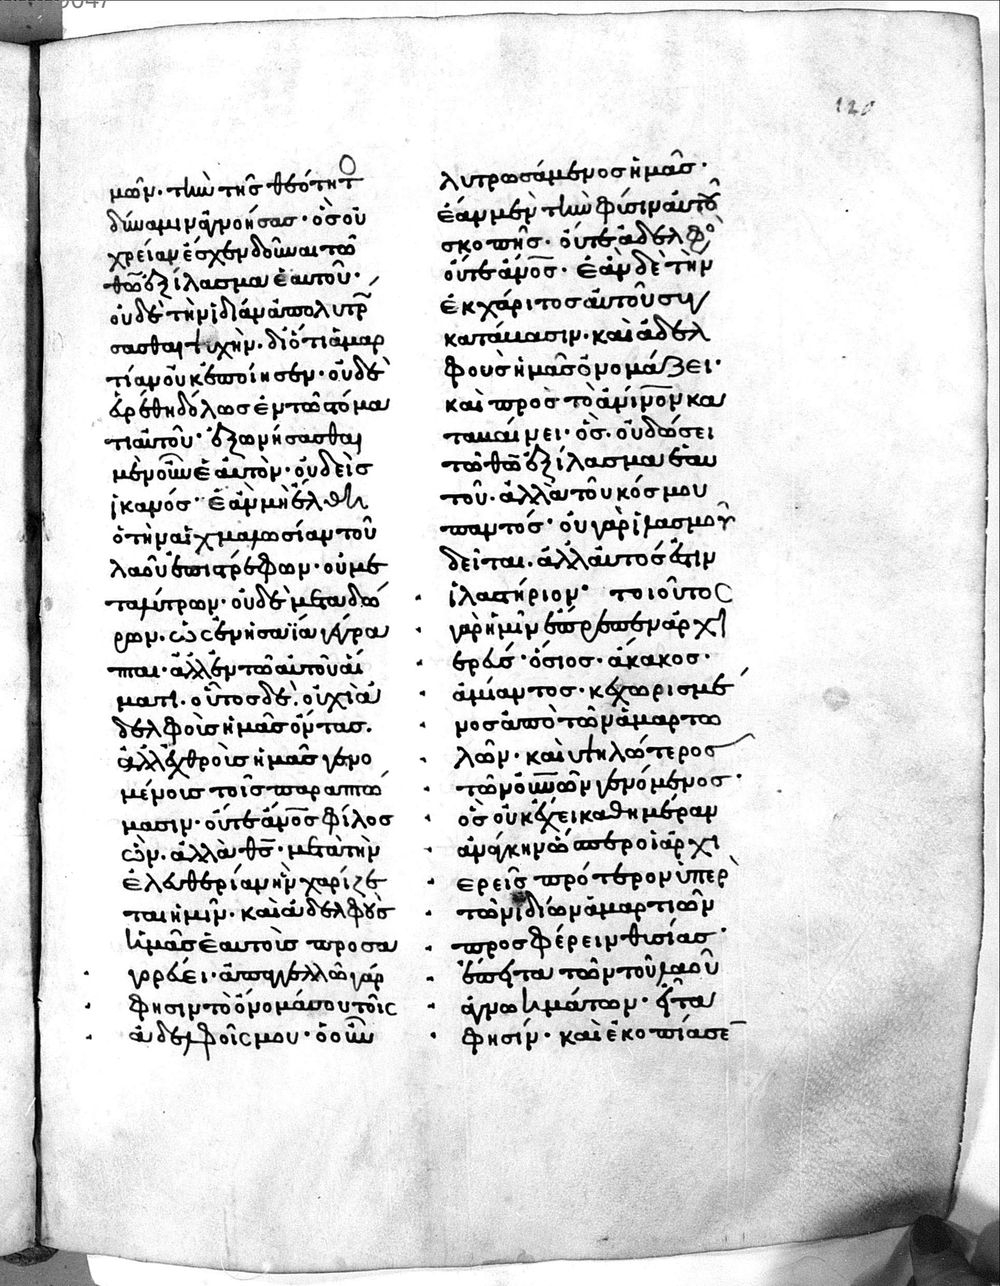 120
μῶν· τὴν τῆς θεότητ
δύναμιν ἀγνοήσας· ὃς οὐ
χρείαν ἔσχεν δοῦναι τῶ
θῶ ἐξίλασμα ἑαυτοῦ·
οὐδὲ τὴν ἰδίαν ἀπολυτρ
σασθαι ψυχήν· διότι ἁμαρ
τίαν οὐκ ἐποίησεν· οὐδὲ
εὑρέθη δόλος ἐν τῶ στόμα
τι αὐτοῦ· ἐξωνήσασθαι
μὲν οὖν ἑαυτὸν· οὐδεὶς
ἱκανός· ἐὰν μὴ ἔλθη
ὁ τὴν αἰχμαλωσίαν τοῦ
λαοῦ ἐπιστρέφων· οὐ με
τὰ λύτρων· οὐδὲ μετὰ δώ
ρων· ὡς ἐν ἡσαΐα γέγρα
πται· ἀλλ' ἐν τῶ αὐτοῦ αἵ
ματι. οὗτος δὲ. οὐχὶ ἀ
δελφοὺς ἡμᾶς ὄντας.
ἀλλ' ἐχθροὺς ἡμᾶς γενο
μένους τοῖς παραπτώ
μασιν· οὔτε ἄνος ψιλὸς
ὢν. ἀλλὰ θς· μετὰ τὴν
ἐλευθερίαν ἣν χαρίζε
ται ἡμῖν· καὶ ἀδελφοὺς
ἡμᾶς ἑαυτοῦ προσα
γορεύει· ἀπαγγελλῶ γάρ
φησιν τὸ ὄνομά σου τοῖς
ἀδελφοῖς μου· ὁ οὖν
λυτρωσάμενος ἡμᾶς·
ἐὰν μὲν τὴν φύσιν αὐτοῦ
σκοπῆς· οὔτε ἀδελφὸ
οὔτε ἄνος· ἐὰν δὲ τὴν
ἐκ χάριτος αὐτοῦ συγ
κατάβασιν· καὶ ἀδελ
φοὺς ἡμᾶς ὀνομάζει·
καὶ πρὸς τὸ ἀνινον κα
ταβαίνει· ὃς. οὐ δώσει
τῶ θῶ ἐξίλασμα ἑαυ
τοῦ. ἀλλὰ τοῦ κόσμου
παντός· οὐ γὰρ ἱλασμοῦ
δεῖται. ἀλλ' αὐτός ἐστιν
ἱλαστήριον· τοιοῦτος
γὰρ ἡμῖν ἔπρεπεν ἀρχι
ερεύς· ὅσιος· ἄκακος·
ἀμίαντος· κεχωρισμέ
νος ἀπὸ τῶν ἁμαρτω
λῶν· καὶ ὑψηλότερος
τῶν οὐνῶν γενόμενος·
ὃς οὐκ ἔχει καθημέραν
ἀνάγκην ὥσπερ οἱ ἀρχι
ερεῖς πρότερον ὑπὲρ
τῶν ἰδίων ἁμαρτιῶν
προσφέρειν θυσίας·
ἔπειτα τῶν τοῦ λαοῦ
ἀγνοημάτων· εἶτα
φησίν· καὶ ἐκοπίασε